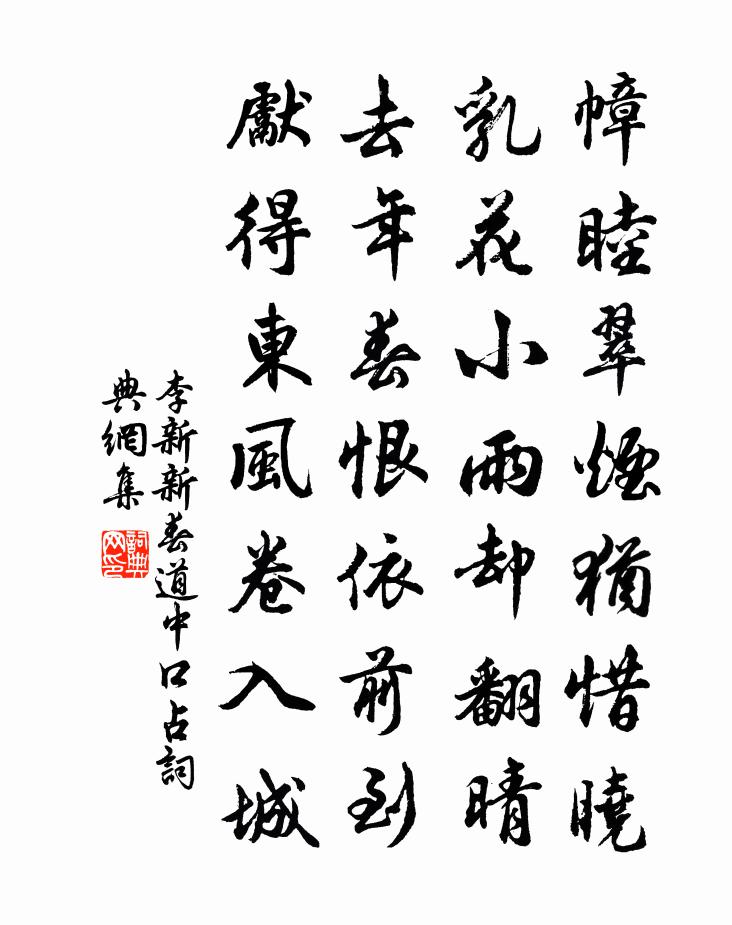 幛睦翠煙猶惜曉
乳花小雨却翻晴
去年春恨依前到
獻得東風卷入城
李新新春道中口占詞
典網集
詞典
网印